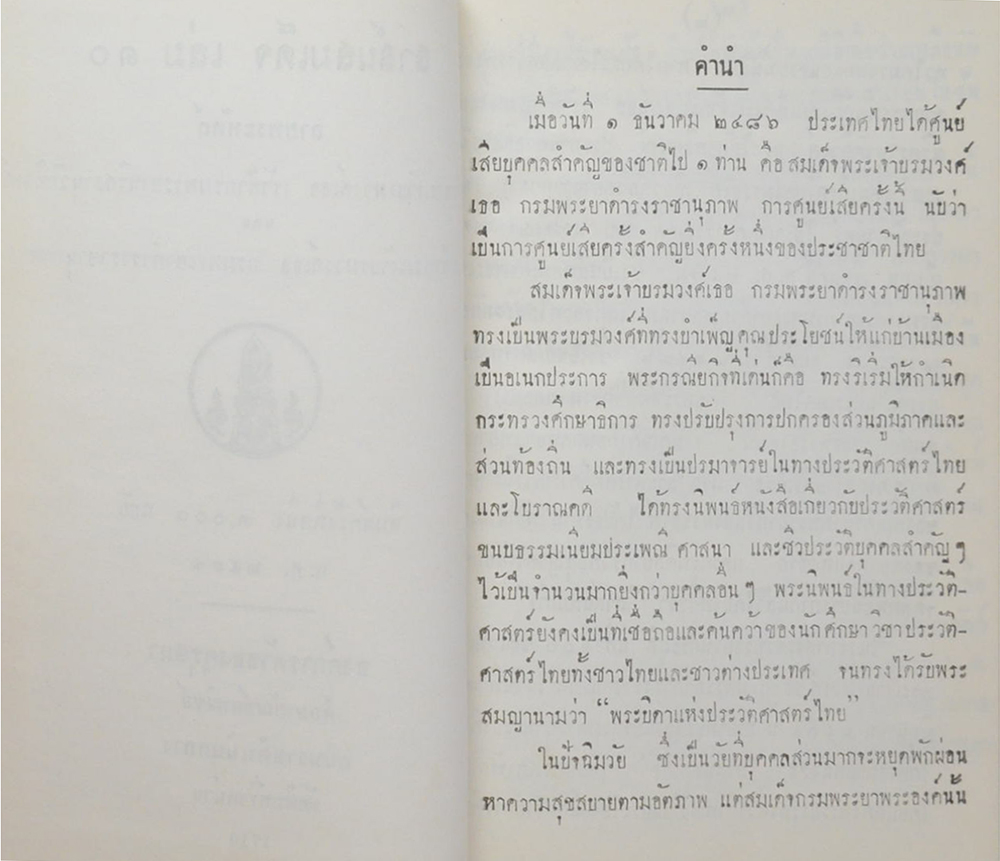 คำนำ
เมื่อวันที่ ๑ ธันวาคม ๒๔๘๖ ประเทศไทยได้ศูนย์
เสียบุคคลสำคัญของชาติไป ๑ ท่าน คือ สมเด็จพระเจ้าบรมวงศ์
เธอ กรมพระยาดำรงราชานุภาพ การศูนย์เสียครั้งนี้ นับว่า
เป็นการศูนย์เสียครั้งสำคัญยิ่งครั้งหนึ่งของประชาชาติไทย
สมเด็จพระเจ้าบรมวงศ์เธอ กรมพระยาดำรงราชานุภาพ
ทรงเป็นพระบรมวงศ์ที่ทรงบำเพ็ญคุณประโยชน์ให้แก่บ้านเมือง
เป็นอเนกประการ พระกรณียกิจที่เด่นก็คือ ทรงริเริ่มให้กำเนิด
กระทรวงศึกษาธิการ ทรงปรับปรุงการปกครองส่วนภูมิภาคและ
ส่วนท้องถิ่น และทรงเป็นปรมาจารย์ในทางประวัติศาสตร์ไทย
และโบราณคดี ได้ทรงนิพนธ์หนังสือเกี่ยวกับประวัติศาสตร์
ขนบธรรมเนียมประเพณี ศาสนา และชีวประวัติบุคคลสำคัญ ๆ
ไว้เป็นจำนวนมากยิ่งกว่าบุคคลอื่น ๆ พระนิพนธ์ในทางประวัติ-
ศาสตร์ยังคงเป็นที่เชื่อถือและค้นคว้าของนักศึกษาวิชาประวัติ-
ศาสตร์ไทยทั้งชาวไทยและชาวต่างประเทศ จนทรงได้รับพระ
สมญานามว่า “พระบิดาแห่งประวัติศาสตร์ไทย”
ในปัจฉิมวัย ซึ่งเป็นวัยที่บุคคลส่วนมากจะหยุดพักผ่อน
หาความสุขสบายตามอัตภาพ แต่สมเด็จกรมพระยาพระองค์นั้น